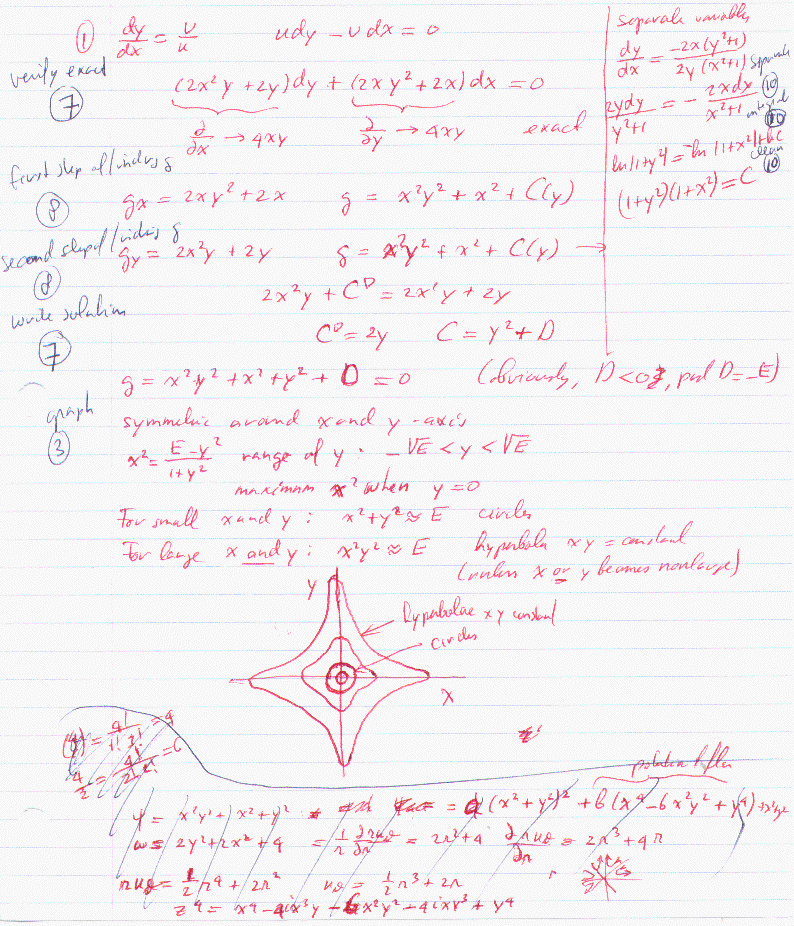 ① dy/dx = v/u   u dy – v dx = 0
verify exact
⑦
(2x²y + 2y) dy + (2xy² + 2x) dx = 0
∂/∂x → 4xy   ∂/∂y → 4xy   exact
first step of finding g
⑧
g_x = 2xy² + 2x   g = x²y² + x² + C(y)
second step of finding g
⑧
g_y = 2x²y + 2y   g = x²y² + x² + C(y) →
2x²y + C' = 2x²y + 2y
write solution
⑦
C' = 2y   C = y² + D
g = x²y² + x² + y² + D = 0   (obviously, D < 0, put D = –E)
graph
③
symmetric around x and y-axis
x² = (E – y²)/(1 + y²)   range of y : –√E < y < √E
maximum x² when y = 0
For small x and y : x² + y² ≈ E   circles
For large x and y : x²y² ≈ E   hyperbola xy = constant
(unless x or y becomes nonlarge)
y
hyperbolae xy constant
circles
x
separate variables
dy/dx = –2x(y²+1) / 2y(x²+1)
separate
⑩
2y dy / (y²+1) = – 2x dx / (x²+1)
integrate
⑩
ln|1+y²| = –ln|1+x²| + ln C
clean
⑩
(1+y²)(1+x²) = C
= 4!/(1! 3!) = 4
= 6
ψ = x²y² + x² + y²
= (x²+y²)² + b(x⁴ – 6x²y² + y⁴)
ω = 2y² + 2x² + 4 = 1/r ∂ruθ/∂r = 2r² + 4   ∂ruθ/∂r = 2r³ + 4r
ruθ = 1/2 r⁴ + 2r²   uθ = 1/2 r³ + 2r
z⁴ = x⁴ – 4ix³y – 6x²y² + 4ixy³ + y⁴